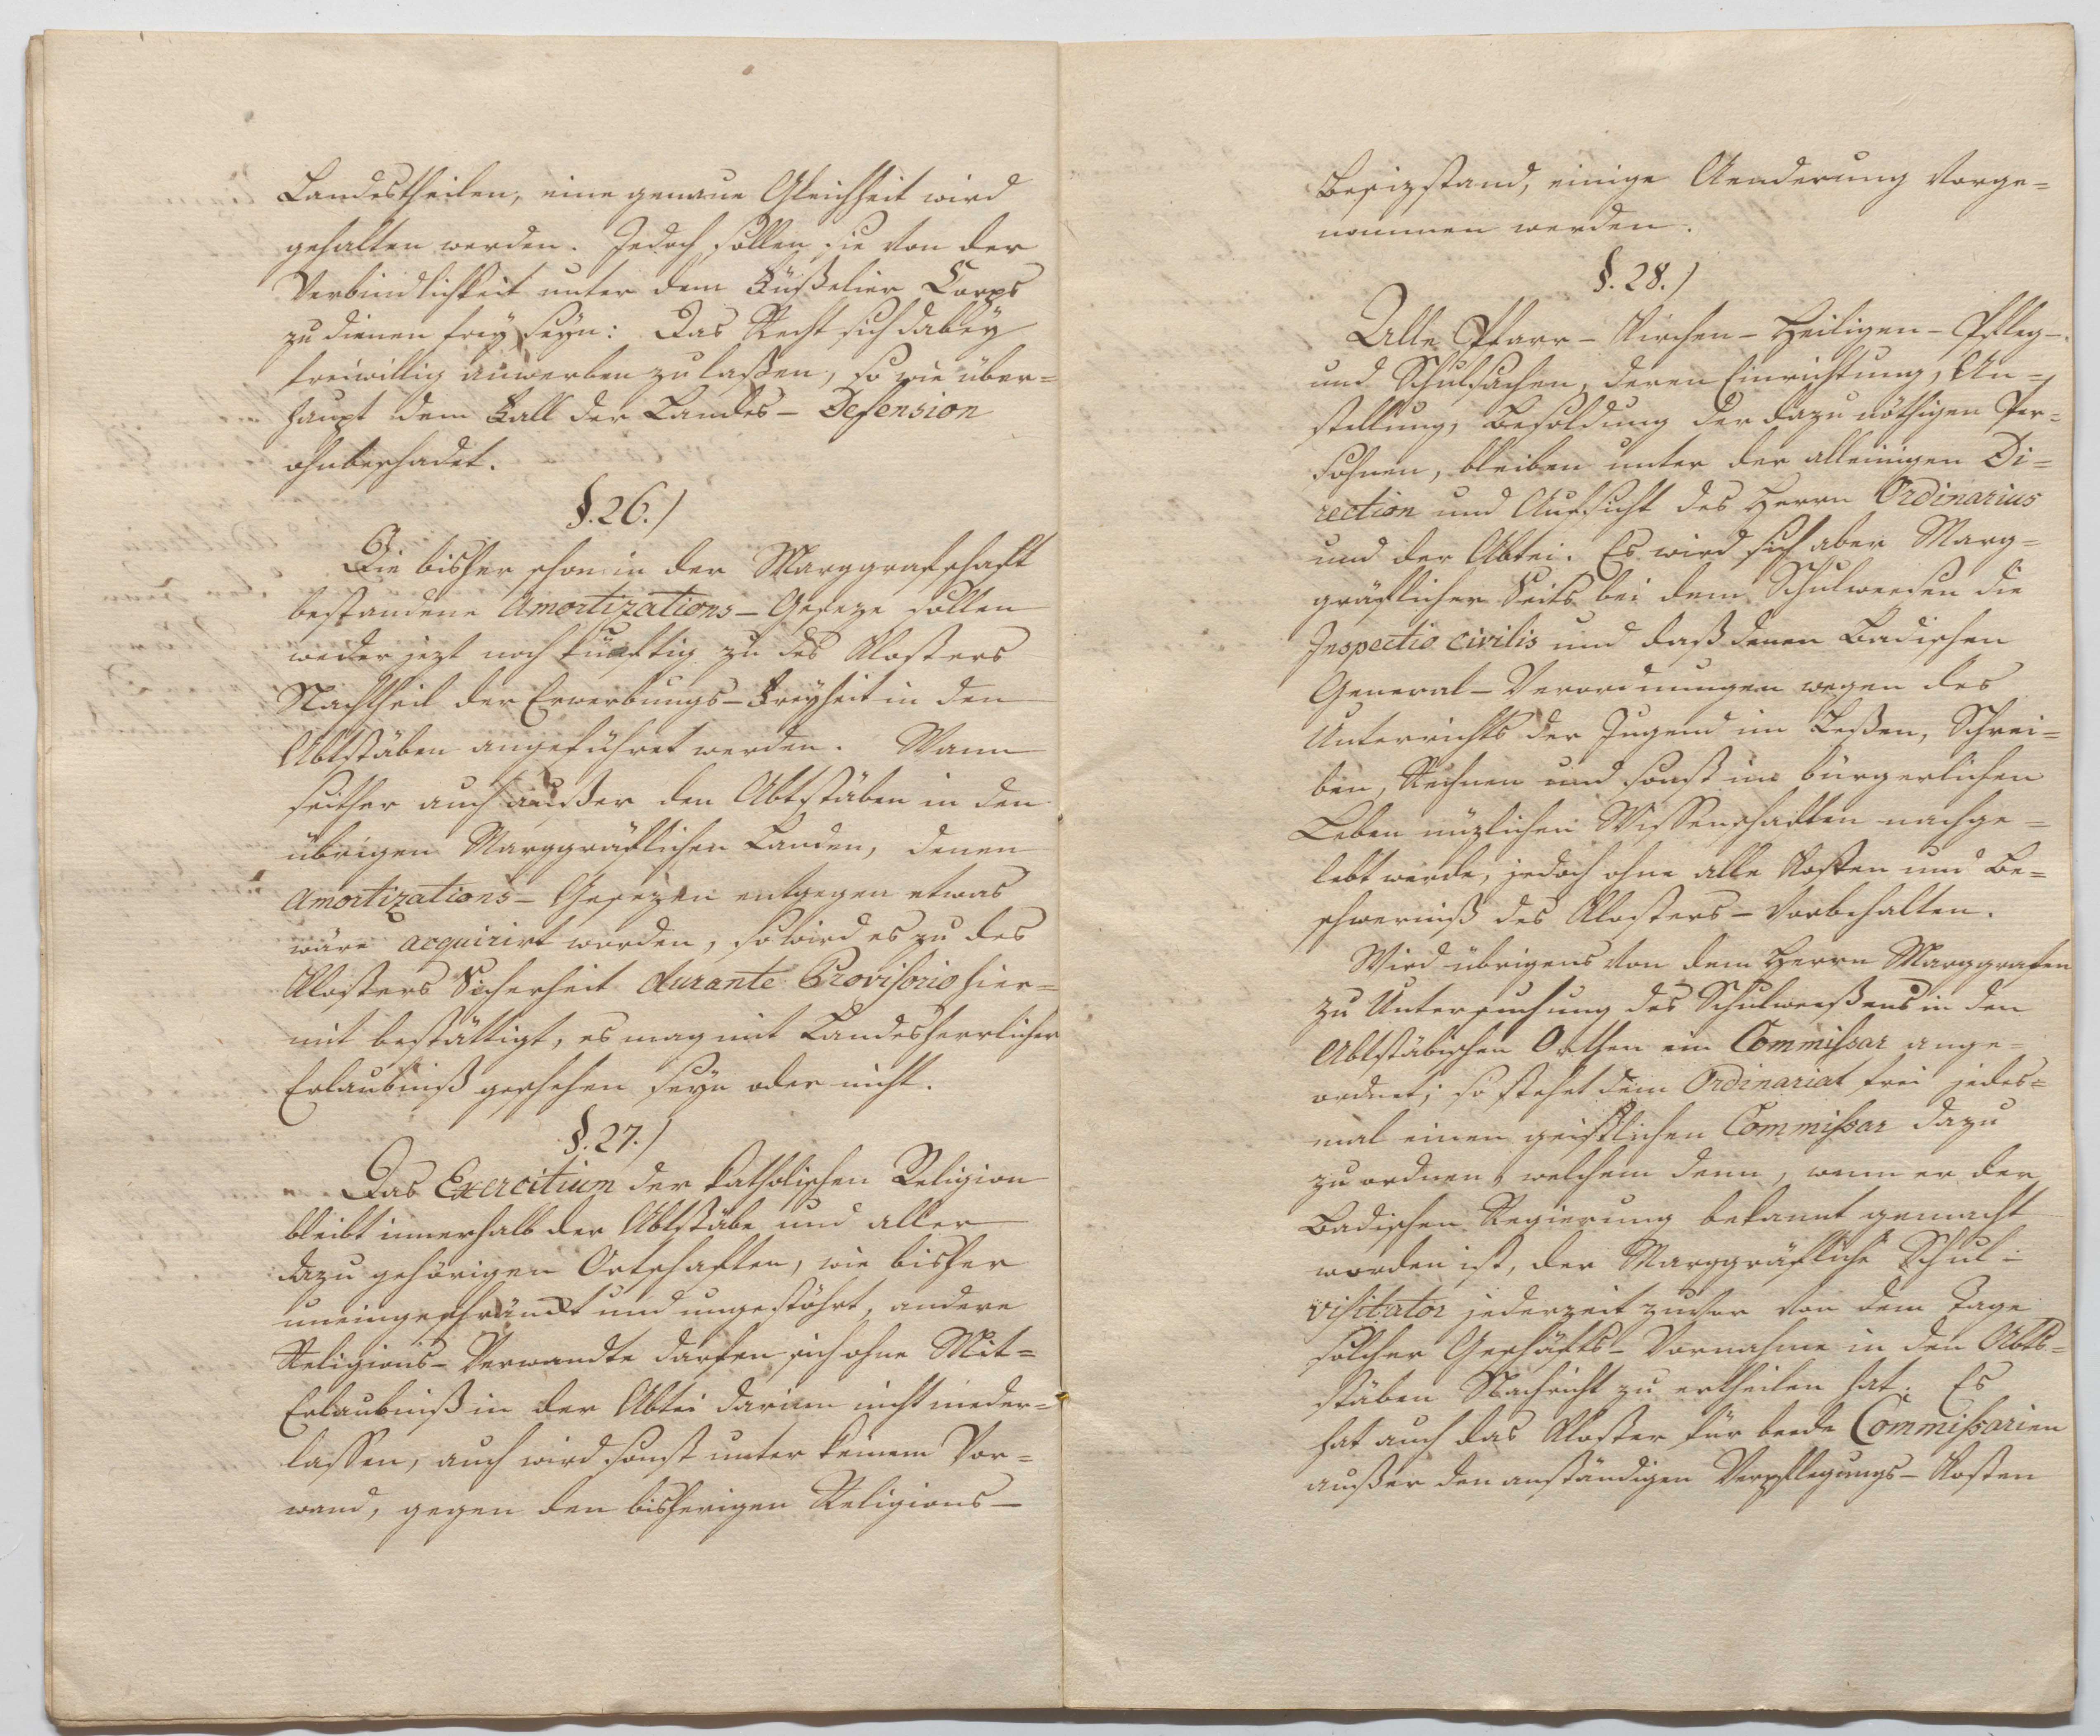 Landestheilen, eine genaue Gleichheit wird
gehalten werden. Jedoch sollen sie von der
Verbindlichkeit unter dem Füßelier Corps
zu dienen frey seyn: Das Recht sich dabey
freiwillig anwerben zu laßen, so wie über=
haupt dem Fall der Landes- Defension
ohnbeschadet.
§. 26./
Die bisher schon in der Marggrafschaft
bestandene Amortizations- Geseze sollen
weder jezt noch künftig zu des Klosters
Nachtheil der Erwerbungs-Freyheit in den
Abtstäben angeführet werden. Wann
seither auch außer den Abtstäben in den
übrigen Marggräflichen Landen, denen
Amortizations- Gesezen entgegen etwas
wäre acquirirt worden, so wird es zu des
Klosters Sicherheit durante Provisorio hier=
mit bestättigt, es mag mit Landesherrlicher
Erlaubniß geschehen seyn oder nicht.
§. 27./
Das Exercitium der katholischen Religion
bleibt innerhalb der Abtstäbe und aller
dazu gehörigen Ortschaften, wie bisher
uneingeschränckt und ungestöhrt, andere
Religions- Verwandte darfen sich ohne Mit=
Erlaubniß in der Abtei darinn nicht nieder=
lassen, auch wird sonst unter keinem Vor=
wand, gegen den bisherigen Religions-
Besizstand, einige Aenderung vorge=
nommen werden.
§. 28./
Alle Pfarr- Kirchen- Heiligen- Pfleg-
und Schulsachen, deren Einrichtung, An=
stellung, Besoldung der dazu nöthigen Per=
sohnen, bleiben unter der alleinigen Di=
rection und Aufsicht des Herrn Ordinarius
und der Abtei. Es wird sich aber Marg=
gräflicher Seits bei dem Schulweesen die
Inspectio civilis und daß denen Badischen
General- Verordnungen wegen des
Unterrichts der Jugend im Leßen, Schrei=
ben, Rechnen und sonst im bürgerlichen
Leben nüzlichen Wissenschaften nachge=
lebt werde, jedoch ohne alle Kosten und Be=
schwerniß des Klosters- vorbehalten.
Wird übrigens von dem Herrn Marggrafen
zu Untersuchung des Schulweeßens in den
Abtstäbischen Orthen ein Commissar ange=
ordnet; so stehet dem Ordinariat frei jedes=
mal einen geistlichen Commissar dazu
zu ordnen, welchem denn, wenn er der
Badischen Regierung bekannt gemacht
worden ist, der Marggräfliche Schul=
visitator jederzeit zuvor von dem Tage
solcher Geschäfts- Vornahme in den Abts=
stäben Nachricht zu ertheilen hat. Es
hat auch das Kloster für beede Commissarien
außer den anständigen Verpflegungs- Kosten